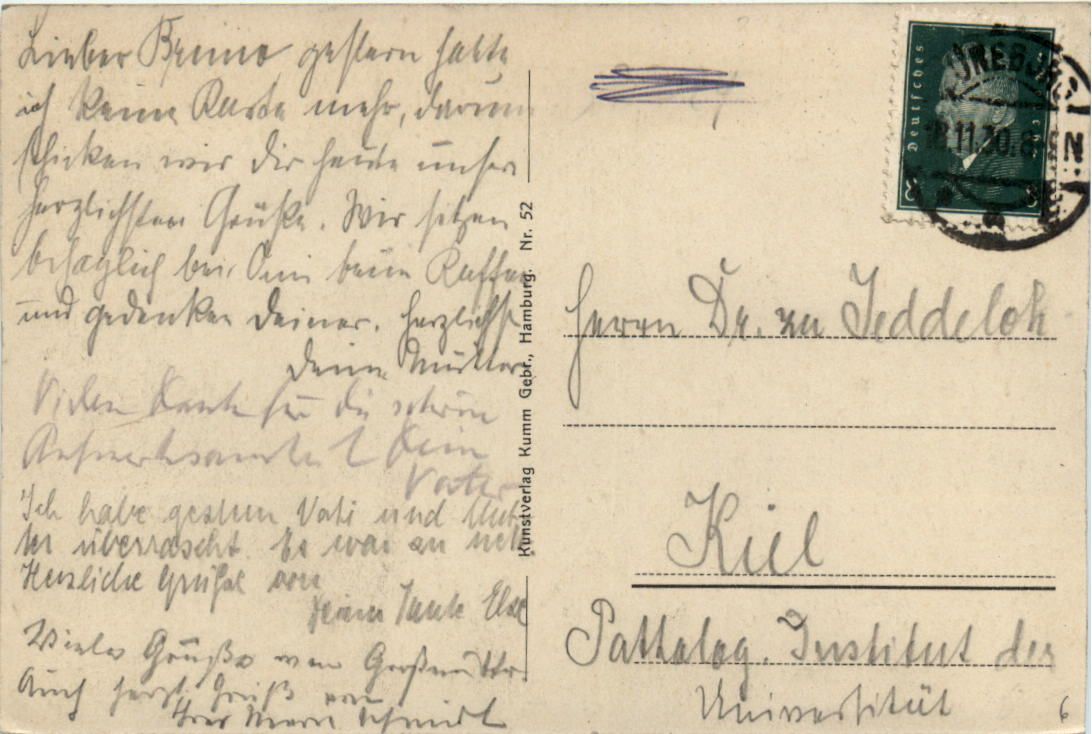 Lieber Bruno gestern hatte
ich keine Karte mehr, darum
schicken wir Dir heute unsere
herzlichsten Grüße. Wir sitzen
behaglich bei Omi beim Kaffee
und gedenken Deiner. Herzlichst
Deine Mutter
Vielen Dank für die schöne
Aufmerksamkeit Dein
Vater
Ich habe gestern Vati und Mut-
ter überrascht. Es war zu nett.
Herzliche Grüße von
Deiner Tante Else
Viele Grüße von Großmutter
Auch herzl. Gruß von
Schmidt
Kunstverlag Kumm Gebr., Hamburg. Nr. 52
Deutsches
8 8
11.30.8
Herrn Dr. zu Jeddeloh
Kiel
Pathalog. Institut der
Universität
6